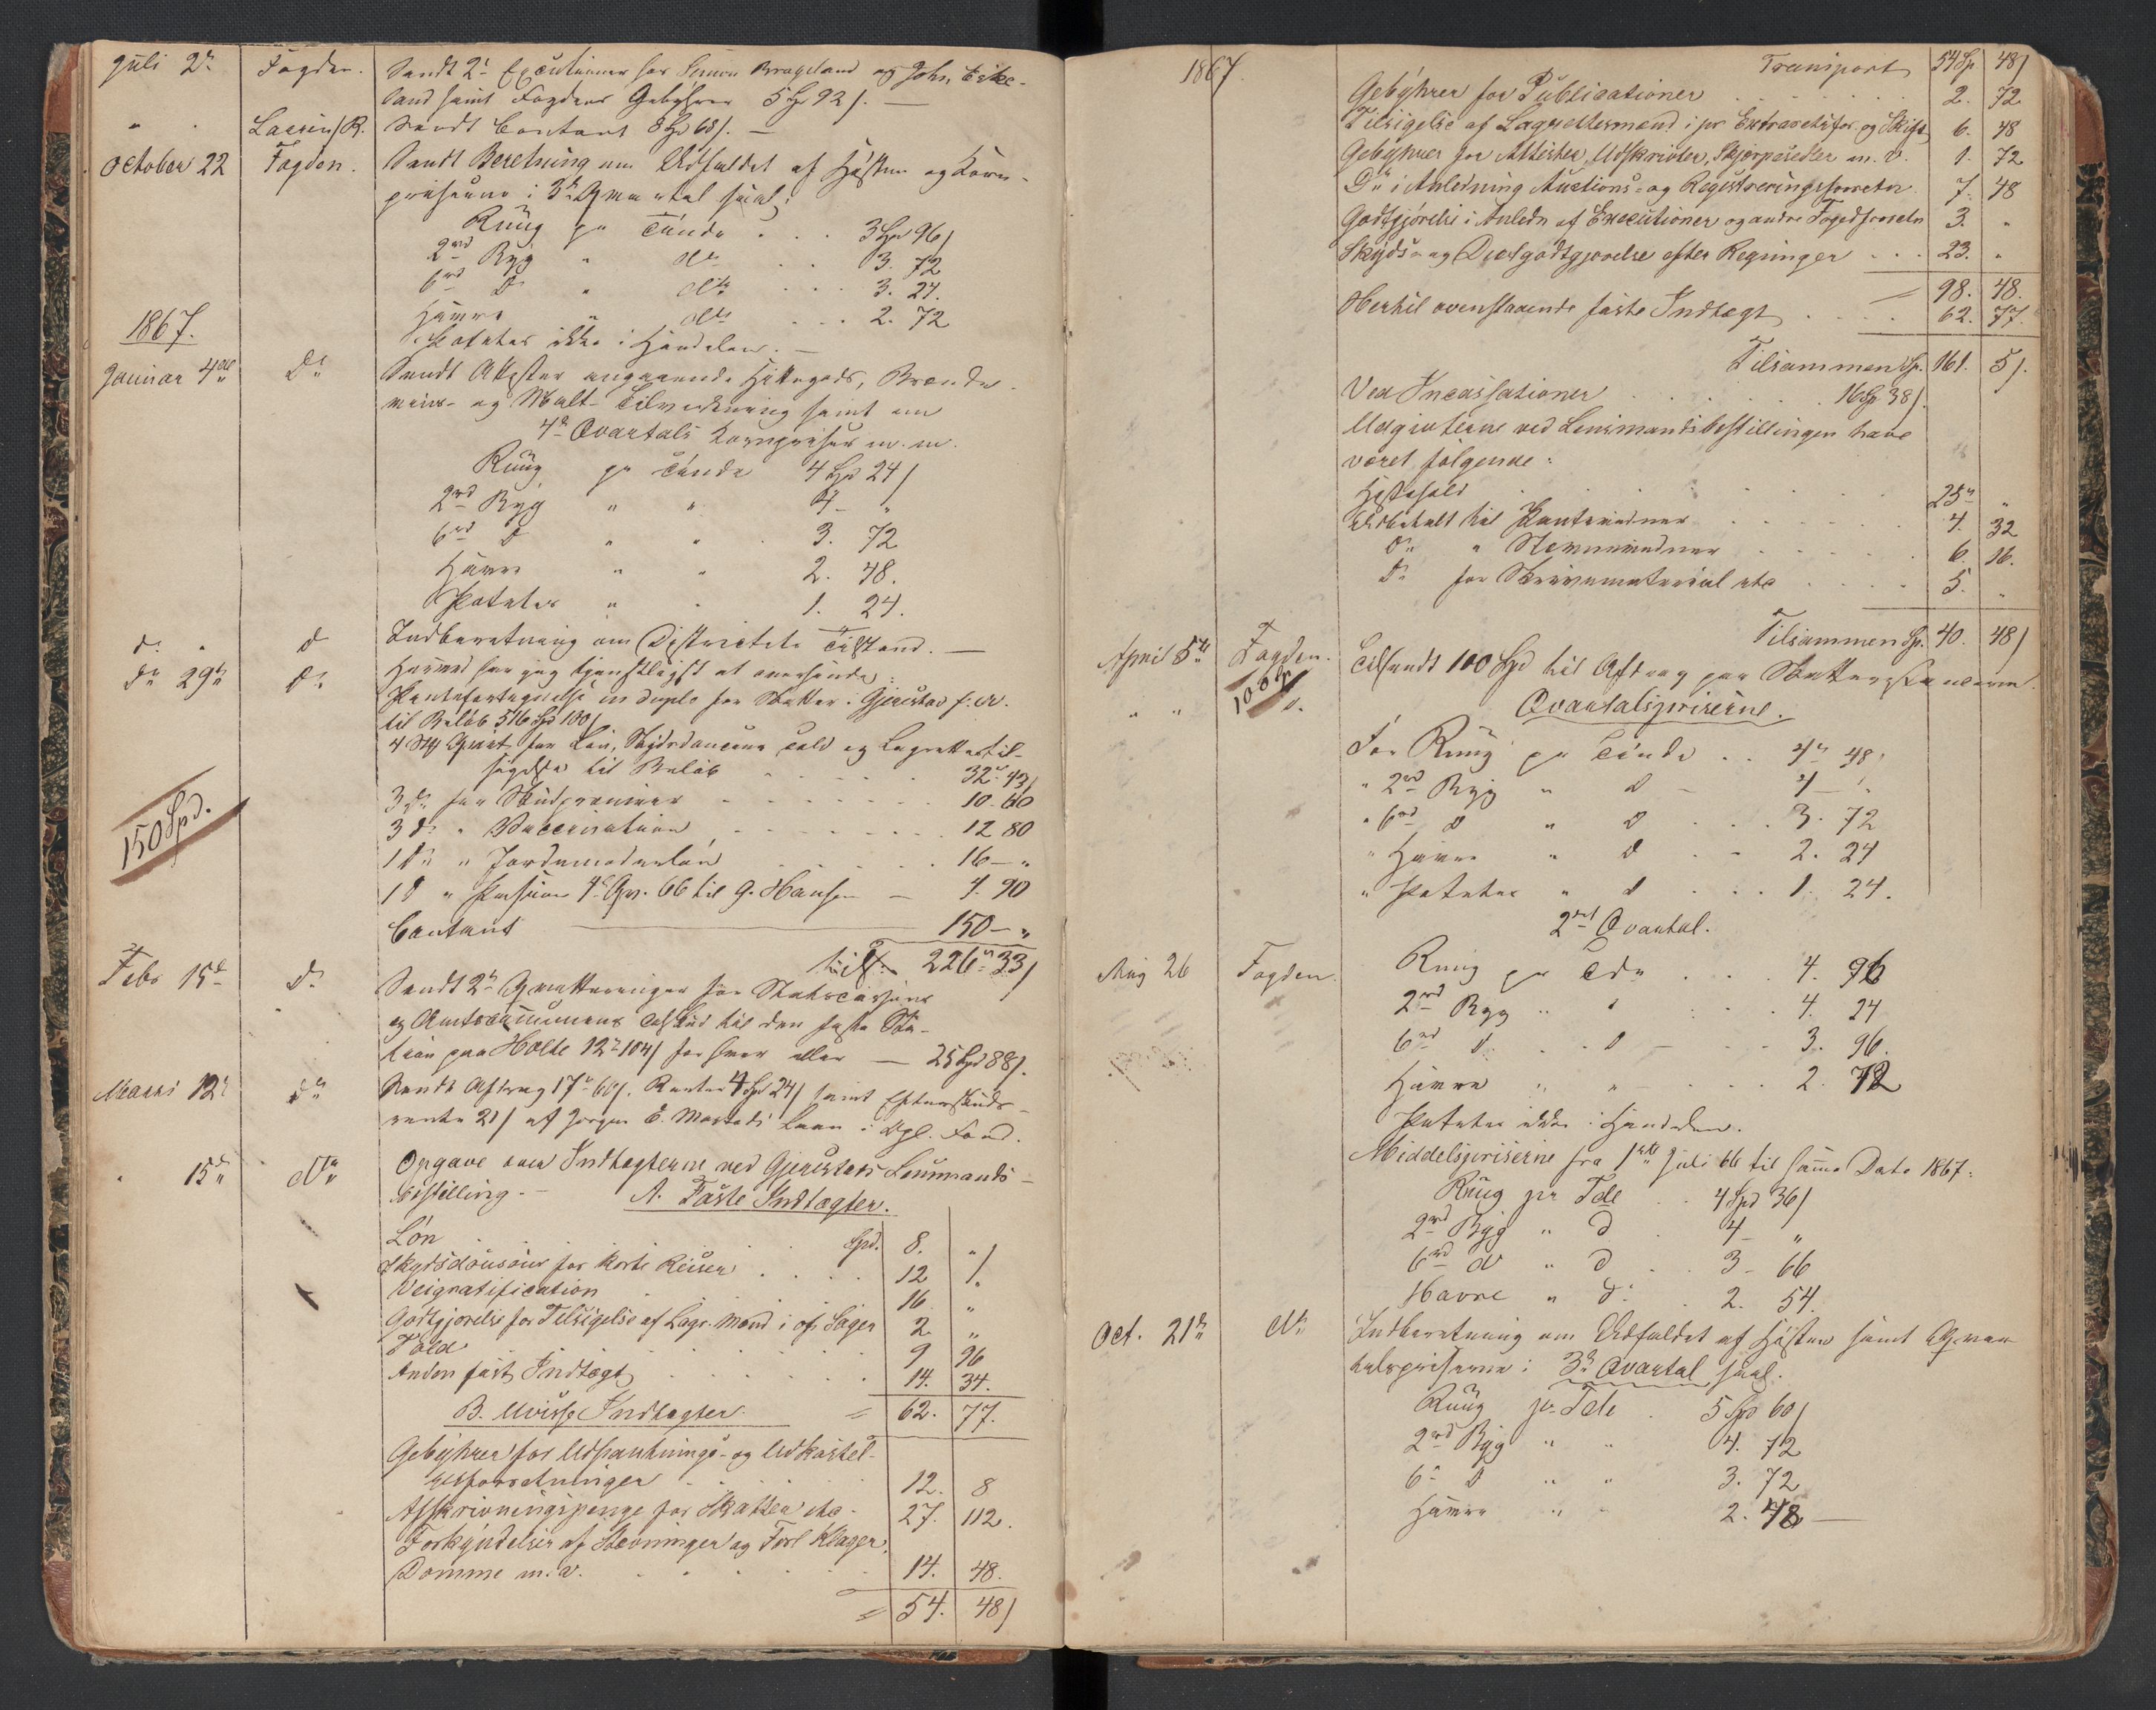 Juli 2n Fogden. Sendt 2n Executioner for Simon Brageland og John Eike-
land samt Fogdens Gebyhrer 5 Spd 92 ſ. —
" . Lassen/R. Sendt Contant 8 Spd 68 ſ. —
October 22 Fogden. Sendt Beretning om Udfaldet af Høsten og Korn-
priserne i 3de Qvartal saal:
Rüug pr Tønde . . . 3 Spd 96 ſ
2rd Byg " dto . . 3. 72
6rd D " dto . . . 3. 24.
Havre " dto . . . 2. 72
Potetes ikke i Handelen. —
1867.
Januar 4de Do Sendt Attester angaaende Hittegods, Brænde-
viins- og Malt-Tilvirkning samt om
4de Qvartals Kornpriser m. m.
Rüug pr Tønde 4 Spd 24 ſ
2rd Byg " " 4 – "
6rd D " " . 3. 72
Havre " " 2. 48.
Potetes " " 1. 24.
do " d Indberetning om Districtets Tilstand. —
do 29de do Herved har jeg tjenstligst at oversende:
Pantefortegnelse in duplo for Skatter i Gjerestad f: A.
til Beløb 516 Spd 100 ſ
4 Stk Qvitt. for Løn, Skydsdouceur Told og Lagrettestil-
sigelse til Beløb . . . . . 32" 43 ſ
3 do for Skudpræmier . . . . . . 10. 60
3 do " Vaccination . . . . . . 12 80
1 do " Jordemoderløn . . . . . 16 – "
1 D " Pension 4de Qv. 66 til G. Hansen — 4. 90
150 Spd.
Contant 150 – "
tils: 226" 33 ſ
Febr 15de do Sendt 2de Qvitteringer for Statscassens
og Amtscommunens Tilskud til den faste Sta-
tion paa Holte 12" 104 ſ for hver eller — 25 Spd 88 ſ.
Marts 12te do Sendt Afdrag 17" 60 ſ. Renter 4 Spd 24 ſ samt Efterskuds-
rente 21 ſ af Jørgen E. Mostads Laan i Opl. Fond.
" 15de dto Opgave over Indtægterne ved Gjerestads Lensmands-
bestilling. – A. Faste Indtægter.
Løn . . . . . Spd. 8. " ſ
Skydsdouceur for korte Reiser . . . . 12 "
Veigratification . . . . . 16 "
Godtgjørelse for Tilsigelse af Lagr. Mænd i off. Sager 2 "
Told . . . . . . . 9 96
Anden fast Indtægt . . . . . 14. 34.
B. Uvisse Indtægter. = 62. 77.
Gebyhrer for Udpantnings- og Udkastel-
sesforretninger . . . . . 12. 8
Afskrivningspenge for Skatter etc. 27. 112.
Forkyndelser af Stevninger og Forl Klager,
Domme m. v. . . . . . 14. 48.
= 54. 48 ſ
1867. Transport 54 Sp 48 ſ
Gebyhrer for Publicationer . . . . . 2. 72
Tilsigelse af Lagrettesmænd i pr Extraretsfor. og Skift. 6. 48
Gebyhrer for Attester, Udskrivter, Skjerpesedler m. v. 1. 72
Do i Anledning Auctions- og Registreringsforretn 7. 48
Godtgjørelse i Anledn af Executioner og andre Fogedforretn 3. "
Skyds- og Diætgodtgjørelse efter Regninger . . . 23. "
= 98. 48.
Hertil ovenstaaende faste Indtægt . . . . 62. 77.
Tilsammen Sp. 161. 5 ſ.
Ved Incassationer . . . . . . 16 Sp 38 ſ.
Udgivterne ved Lensmandsbestillingen have
været følgende:
Hestehold . . . . . . . 25" "
Udbetalt til Pantevidner . . . . . 4. 32
do " Stevnevidner . . . . . 6. 16.
do for Skrivematerial etc . . . . 5. "
Tilsammen Sp. 40. 48 ſ
April 5te Fogden. Tilsendt 100 Spd til Afdrag paa Skatterestancerne.
100 Sp
" " d. Qvartalspriserne.
For Rüug pr Tønde . . 4" 48.
" 2rd Byg " d – 4 – "
" 6rd d " d . . . 3. 72
" Havre " d . – 2. 24
" Potetes " d . . . 1. 24.
2det Qvartal.
Aug 26 Fogden. Rüug pr Tde . . . 4. 96
2rd Byg " " . . . 4. 24
6rd d. . . d – – . 3. 96.
Havre " " – . . . 2. 72
Potetes ikke i Handelen.
Middelpriserne fra 1ste Juli 66 til samme Dato 1867:
Rüug pr Tde . . 4 Spd 36 ſ
2rd Byg " d 4 "
6rd d " d . . 3 – 66
Havre " d: . 2. 54.
Oct. 21de dto Indberetning om Udfaldet af Høsten samt Qvar-
talspriserne i 3de Qvartal saal.
Rüug pr Tde . 5 Spd 60 ſ
2rd Byg " " 4. 72
6rd D " " 3. 72
Havre " " 2. 48 —